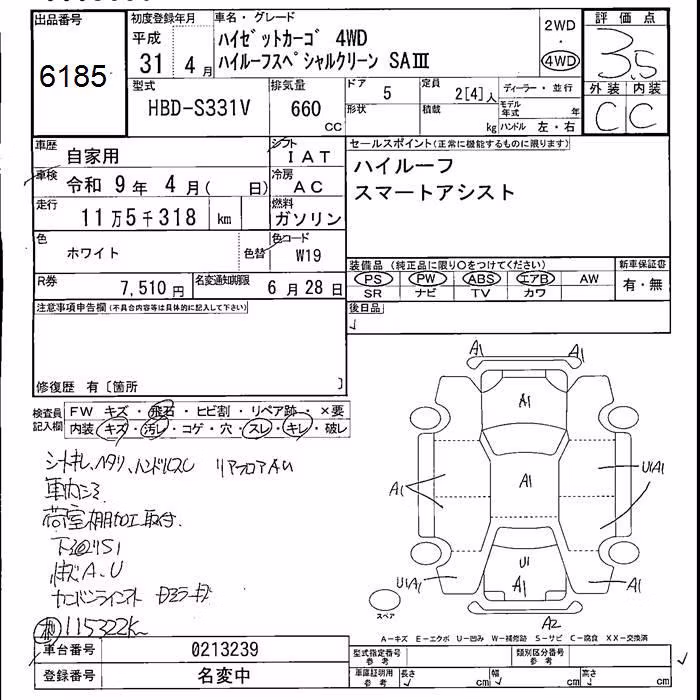 出品番号
6185
初度登録年月
平成
31 4月
車名・グレード
ハイゼットカーゴ 4WD
ハイルーフスペシャルクリーン SAⅢ
2WD
・
4WD
評価点
3.5
外装 内装
C C
型式
HBD-S331V
排気量
660
CC
ドア
5
定員
2[4]人
形状
積載
kg
ディーラー・並行
モデル年式 年
ハンドル 左・右
車歴
自家用
シフト
IAT
車検
令和 9年 4月( 日)
冷房
AC
走行
11万5千318 km
燃料
ガソリン
色
ホワイト
色替
色コード
W19
R券
7,510円
名変通知期限
6月28日
セールスポイント(正常に機能するものに限ります)
ハイルーフ
スマートアシスト
装備品 (純正品に限り○をつけてください)
PS PW ABS エアB AW
SR ナビ TV カワ
新車保証書
有・無
後日品
注意事項申告欄(不具合内容等は具体的に記入して下さい)
修復歴 有〔箇所 〕
検査員記入欄
FW キズ・飛石・ヒビ割・リペア跡・×要
内装 キズ・汚レ・コゲ・穴・スレ・キレ・破レ
シートキレ、ヘタリ、ハンドルスレ リアフロアAU
荷室棚加工取付
下廻りS1
115322K
A1 A1
A1
A1
A1
A1
U1A1
U1
A1
U1A1
A1
A2
スペア
A-キズ E-エクボ U-凹み W-補修跡 S-サビ C-腐食 XX-交換済
車台番号
0213239
登録番号
名変中
型式指定番号
参考
類別区分番号
参考
車庫証明用
参考
長さ cm
幅 cm
高さ cm